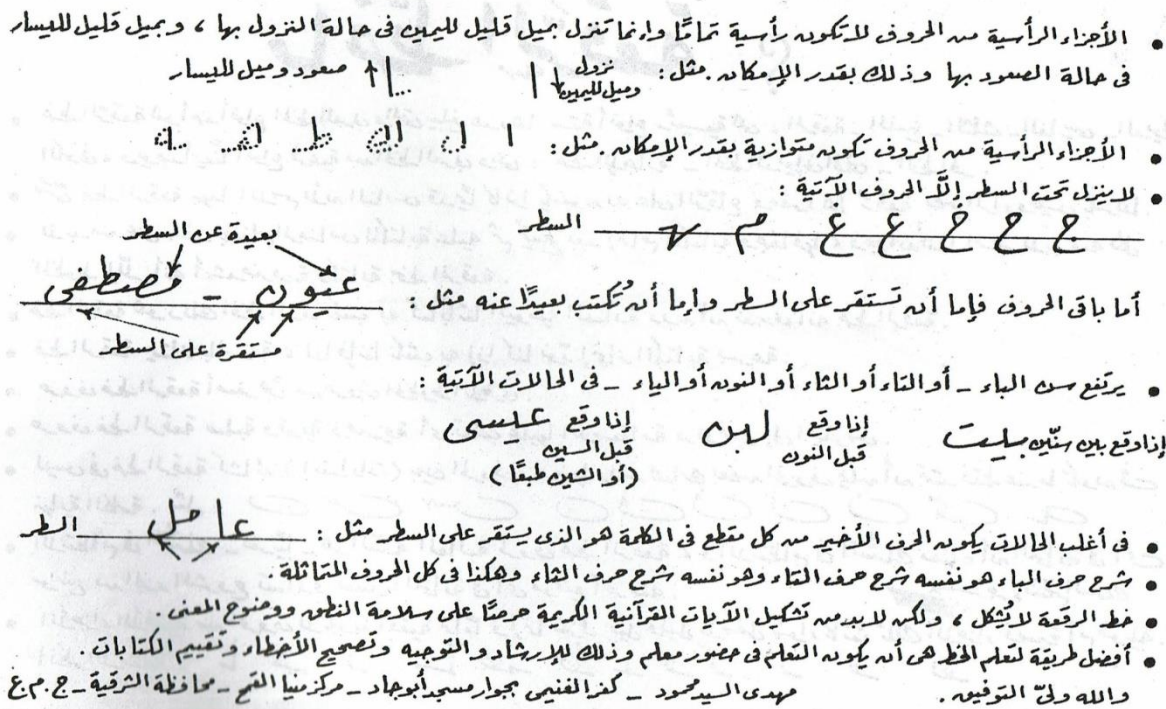 • الأجزاء الرأسية من الحروف لا تكون رأسية تمامًا وإنما تنزل بميل قليل لليمين فى حالة النزول بها ، وبميل قليل لليسار
فى حالة الصعود بها وذلك بقدر الإمكان . مثل : نزول وميل لليمين صعود وميل لليسار
• الأجزاء الرأسية من الحروف تكون متوازية بقدر الإمكان . مثل :
• لا ينزل تحت السطر إلَّا الحروف الآتية :
ح ج خ ع غ م ه السطر
بعيدة عن السطر
أما باقى الحروف فإما أن تستقر على السطر وإما أن تُكتب بعيدًا عنه مثل : عيون - مصطفى
مستقرة على السطر
• يرتفع سن الباء - أو التاء أو الثاء أو النون أو الياء - فى الحالات الآتية :
إذا وقع بين سنّين بيليت إذا وقع قبل النون لبن إذا وقع قبل السين (أو الشين طبعًا) عبسى
• فى أغلب الحالات يكون الحرف الأخير من كل مقطع فى الكلمة هو الذى يستقر على السطر مثل : عاجل السطر
• شرح حرف الباء هو نفسه شرح حرف التاء وهو نفسه شرح حرف الثاء وهكذا فى كل الحروف المتماثلة .
• خط الرقعة لا يُشكل ، ولكن لابد من تشكيل الآيات القرآنية الكريمة حرصًا على سلامة النطق ووضوح المعنى .
• أفضل طريقة لتعلم الخط هى أن يكون التعلم فى حضور معلم وذلك للإرشاد والتوجيه وتصحيح الأخطاء وتقييم الكتابات .
والله ولىّ التوفيق . مهدى السيد محمود - كفر الغنيمى بجوار مسجد أبو جاد - مركز منيا القمح - محافظة الشرقية - ج . م . ع